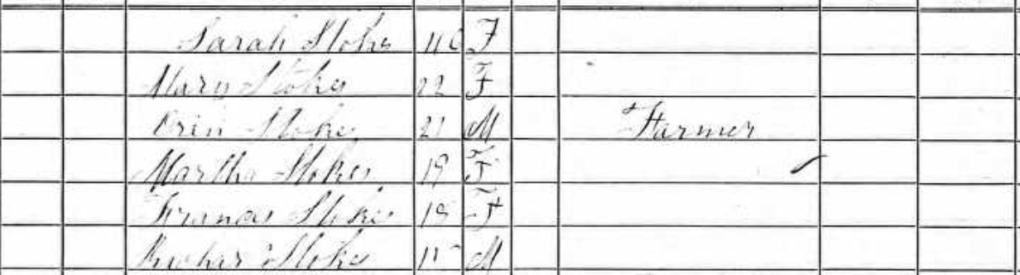 Sarah Stokes F
Mary Stokes 22 F
Orin Stokes 21 M Farmer
Martha Stokes 19 F
Francis Stokes 18 F
Stokes M